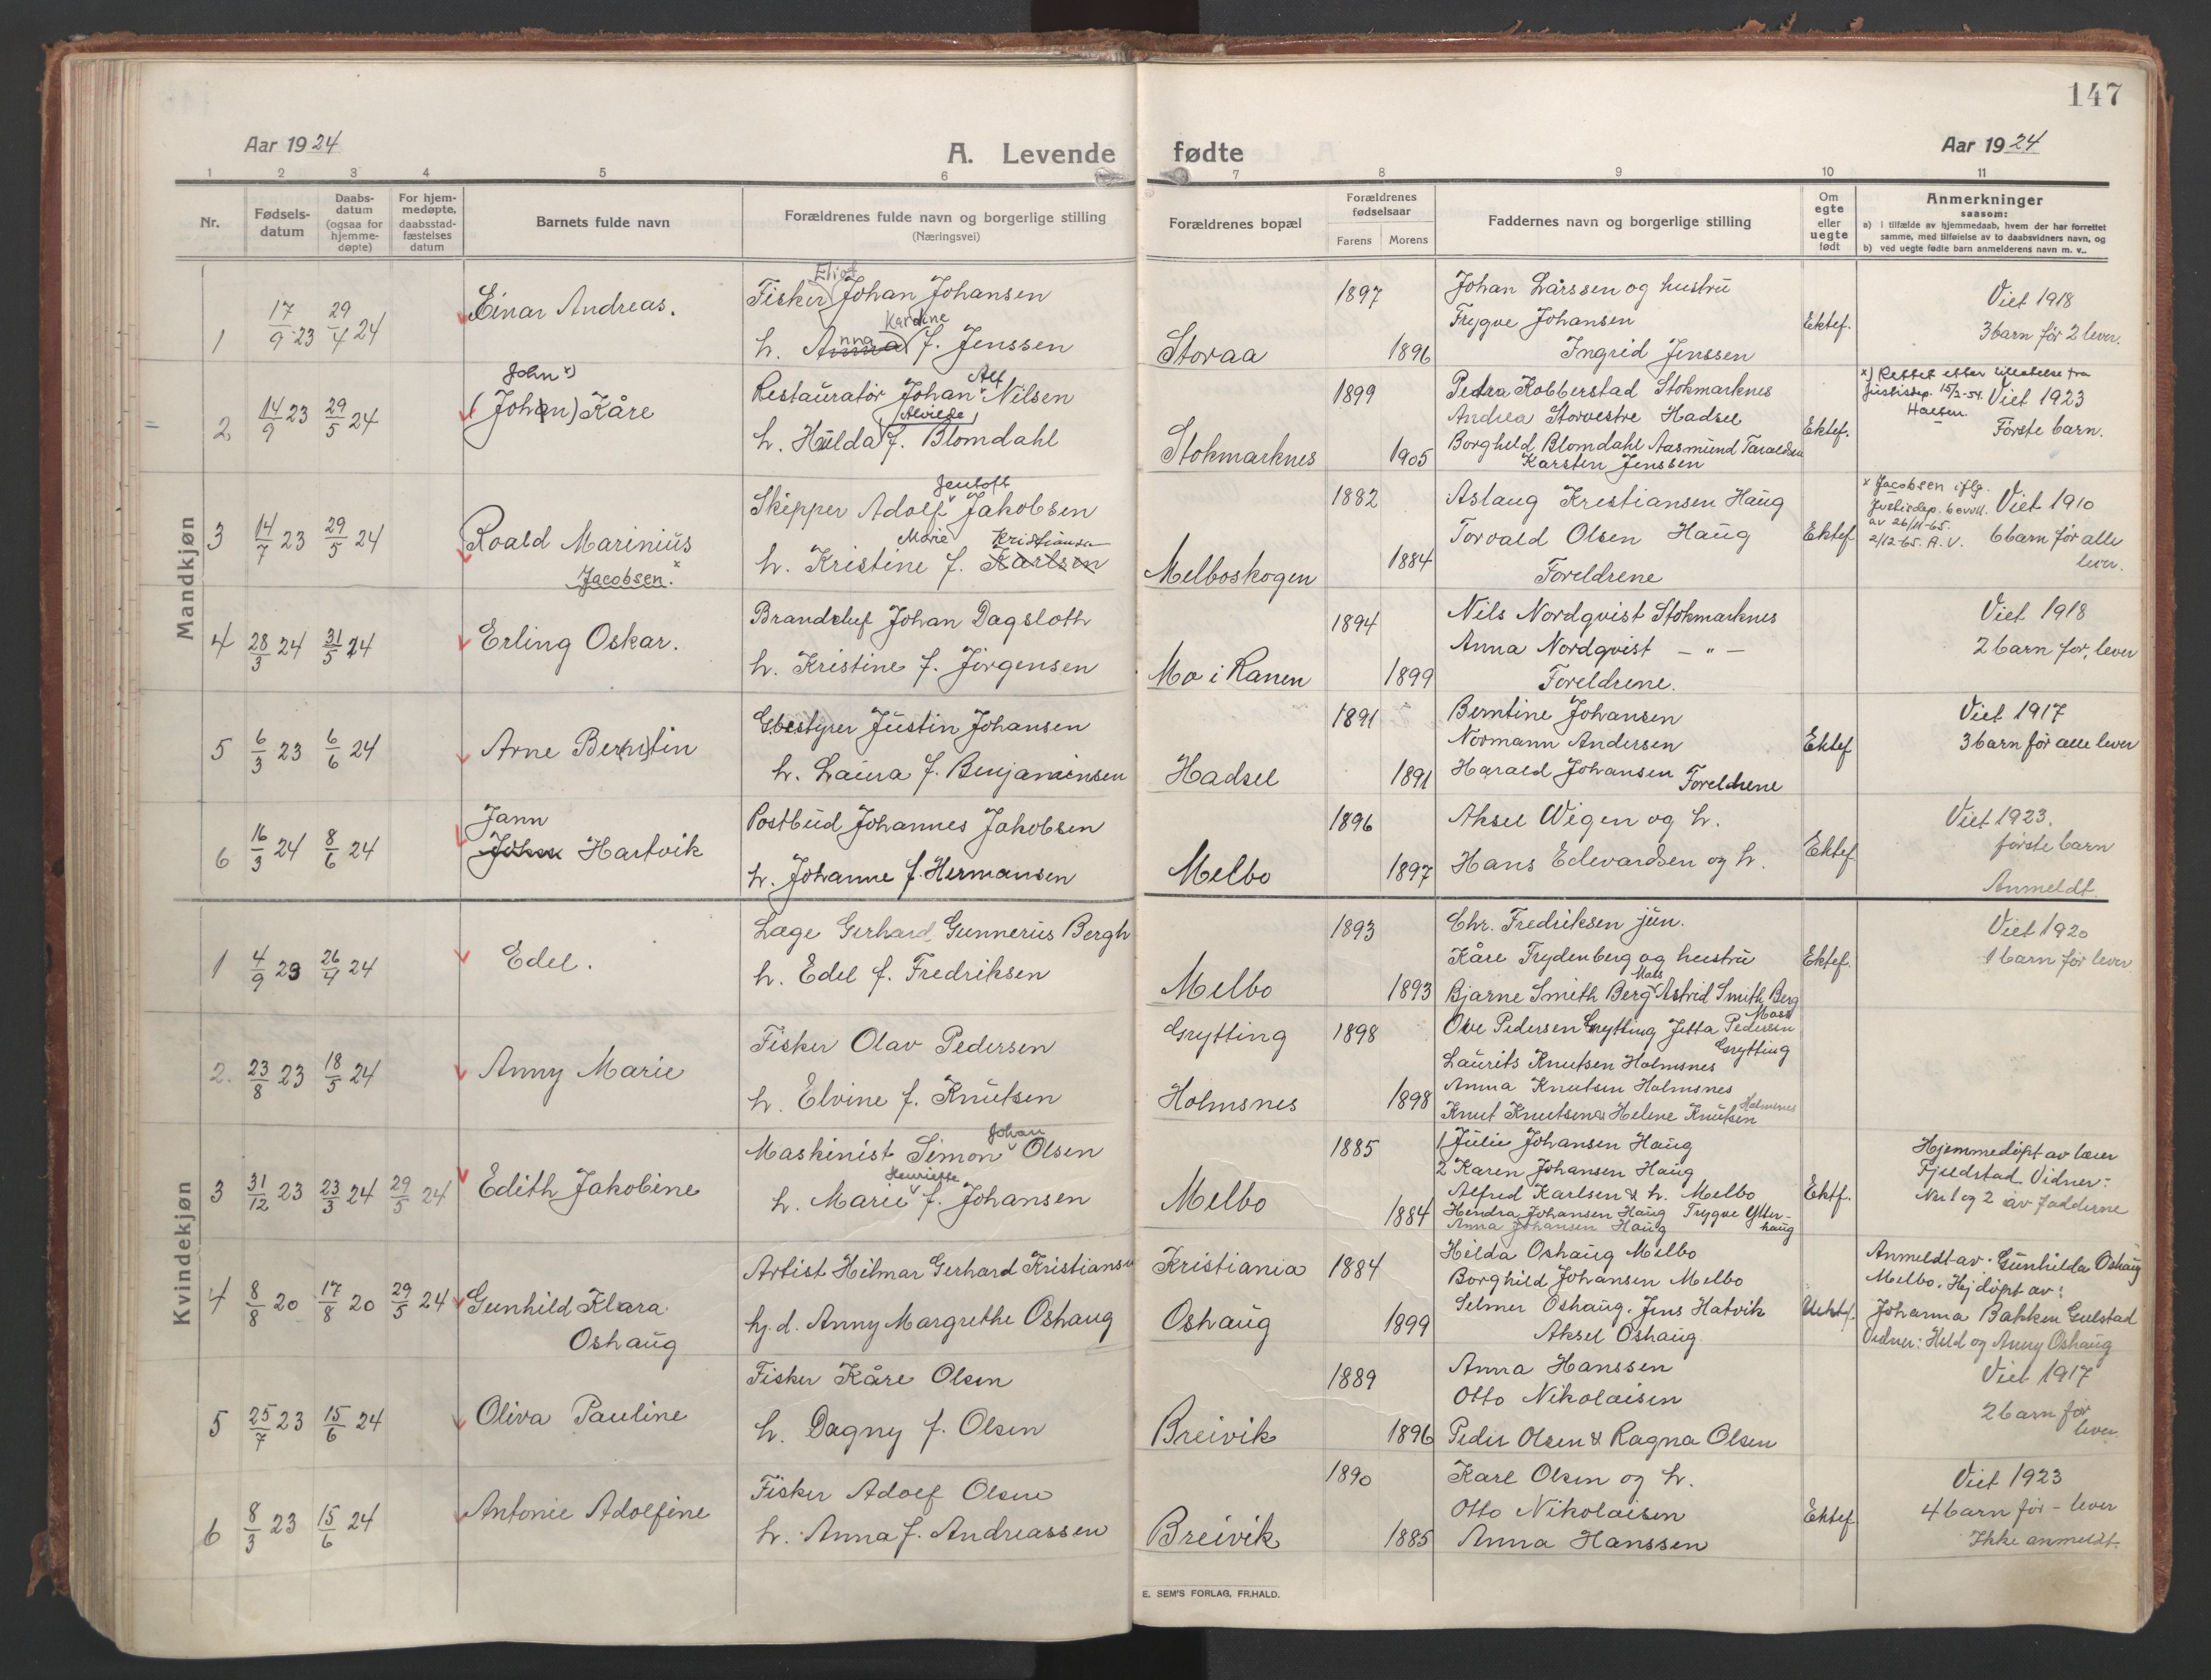 147
Aar 1924
A. Levende fødte
Aar 1924
1 2 3 4 5 6 7 8 9 10 11
Nr.
Fødsels-
datum
Daabs-
datum
(ogsaa for
hjemme-
døpte)
For hjem-
medøpte,
daabsstad-
fæstelses
datum
Barnets fulde navn
Forældrenes fulde navn og borgerlige stilling
(Næringsvei)
Forældrenes bopæl
Forældrenes
fødselsaar
Farens Morens
Faddernes navn og borgerlige stilling
Om
egte
eller
uegte
født
Anmerkninger
saasom:
a) i tilfælde av hjemmedaab, hvem der har forrettet
samme, med tilføielse av to daabsvidners navn, og
b) ved uegte fødte barn anmelderens navn m. v..
Mandkjøn
1 17/9 23 29/4 24 Einar Andreas.
Fisker Eliot Johan Johansen
h. Anna Kardine f. Jenssen
Storaa
1897
1896
Johan Larssen og hustru
Trygve Johansen
Ingrid Jenssen
Ektef.
Viet 1918
3 barn før 2 lever.
2 14/9 23 29/5 24
John x)
(Johan) Kåre
Restauratør Johan Alf Nilsen
h. Hulda Alvilde f. Blomdahl
Stokmarknes
1899
1905
Petra Kobberstad Stokmarknes
Andrea Storvestre Hadsel
Borghild Blomdahl Aasmund Taraldsen
Karsten Jenssen
Ektef.
x) Rettet efter tillatelse fra
Justisdep. 15/2-54.
Viet 1923
Første barn.
3 14/7 23 29/5 24 Roald Marinius
Jacobsen. x
Skipper Adolf Jentoft Jakobsen
h. Kristine Marie f. Karlsen Kristiansen
Melboskogen
1882
1884
Aslaug Kristiansen Haug
Torvald Olsen Haug
Foreldrene
Ektef
x Jacobsen iflg.
Justisdep. bevill.
av 26/11-65.
2/12-65. A. V.
Viet 1910
6 barn før alle
lever.
4 28/3 24 31/5 24 Erling Oskar.
Brandchef Johan Dagsloth
h. Kristine f. Jørgensen
Mo i Ranen
1894
1899
Nils Nordqvist Stokmarknes
Anna Nordqvist — " —
Foreldrene.
Viet 1918
2 barn før, lever
5 6/3 23 6/6 24 Arne Bernstin
Gbestyrer Justin Johansen
h. Laura f. Benjaminsen
Hadsel
1891
1891
Berntine Johansen
Normann Andersen
Harald Johansen Foreldrene
Ektef
Viet 1917
3 barn før alle lever
6 16/3 24 8/6 24
Jann
Johan Hartvik
Postbud Johannes Jakobsen
h. Johanne f. Hermansen
Melbo
1896
1897
Aksel Wigen og h.
Hans Edvardsen og h.
Ektef
Viet 1923.
første barn
Anmeldt
Kvindekjøn
1 4/9 23 26/4 24 Edel.
Læge Gerhard Gunnerius Bergh
h. Edel f. Fredriksen
Melbo
1893
1893
Chr. Fredriksen jun.
Kåre Frydenberg og hustru
Bjarne Smith Berg Mats Astrid Smith Berg
Ektef.
Viet 1920
1 barn før lever
2. 23/8 23 18/5 24 Anny Marie
Fisker Olav Pedersen
h. Elvine f. Knutsen
Grytting
Holmsnes
1898
1898
Ove Pedersen Grytting Jetta Pedersen
Grytting
Laurits Knutsen Holmsnes
Anna Knutsen Holmsnes
Knut Knutsen & Helene Knutsen Holmsnes
3 31/12 23 23/3 24 29/5 24 Edith Jakobine
Maskinist Simon Johan Olsen
h. Marie Henriette f. Johansen
Melbo
1885
1884
1 Julie Johansen Haug
2 Karen Johansen Haug
Alfred Karlsen & h. Melbo
Hendra Johansen Haug Trygve Ytter-
haug
Anna Johansen Haug
Ektf.
Hjemmedøpt av lærer
Fjeldstad Vidner:
Nr 1 og 2 av fadderne
4 8/8 20 17/8 20 29/5 24 Gunhild Klara
Oshaug
Artist Hilmar Gerhard Kristiansen
hj. d. Anny Margrethe Oshaug
Kristiania
Oshaug
1884
1899
Hilda Oshaug Melbo
Borghild Johansen Melbo
Selmer Oshaug. Jens Hatvik
Aksel Oshaug
Uektf.
Anmeldt av: Gunhilda Oshaug
Melbo. Hj døpt av:
Johanna Bakken Gulstad
Vidner: Held og Anny Oshaug
5 25/7 23 15/6 24 Oliva Pauline
Fisker Kåre Olsen
h. Dagny f. Olsen
Breivik
1889
1896
Anna Hanssen
Otto Nikolaisen
Peder Olsen & Ragna Olsen
Viet 1917
2 barn før
lever.
6 8/3 23 15/6 24 Antonie Adolfine
Fisker Adolf Olsen
h. Anna f. Andreassen
Breivik
1890
1885
Karl Olsen og h.
Otto Nikolaisen
Anna Hanssen
Ektef
Viet 1923
4 barn før - lever
Ikke anmeldt.
E. SEM'S FORLAG, FR.HALD.